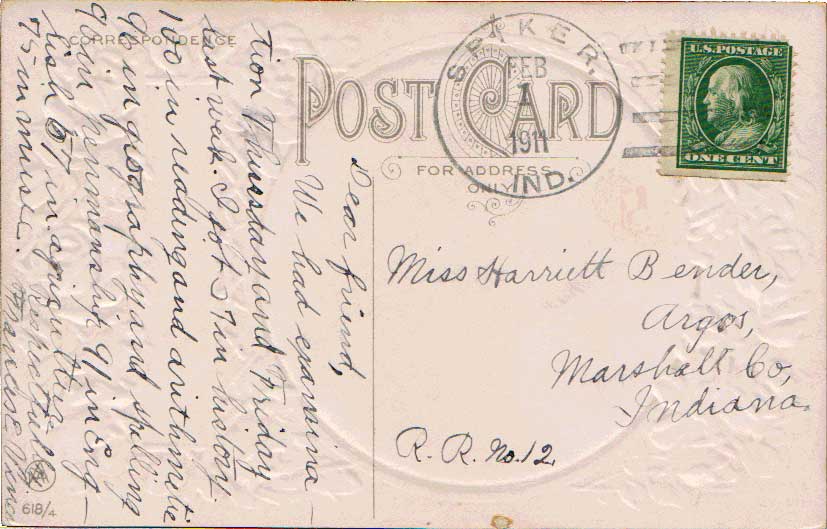 CORRESPONDENCE
POST CARD
FOR ADDRESS
ONLY
SPIKER.
FEB
1
1911
IND.
U.S. POSTAGE
ONE CENT
Dear friend,
We had examina-
tion Thursday and Friday
last week. I got 97 in history
100 in reading and arithmetic
96 in geography and spelling
90 in penmanship 91 in Eng-
lish 87 in agriculture
75 in music.
Respectfully
Miss Harriett Bender,
Argos,
Marshall Co,
Indiana.
R.R. No. 12.
618/4